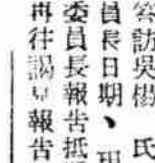 訪吳楊 氏
員長日期、
委員長報告抵
再往謁 報告